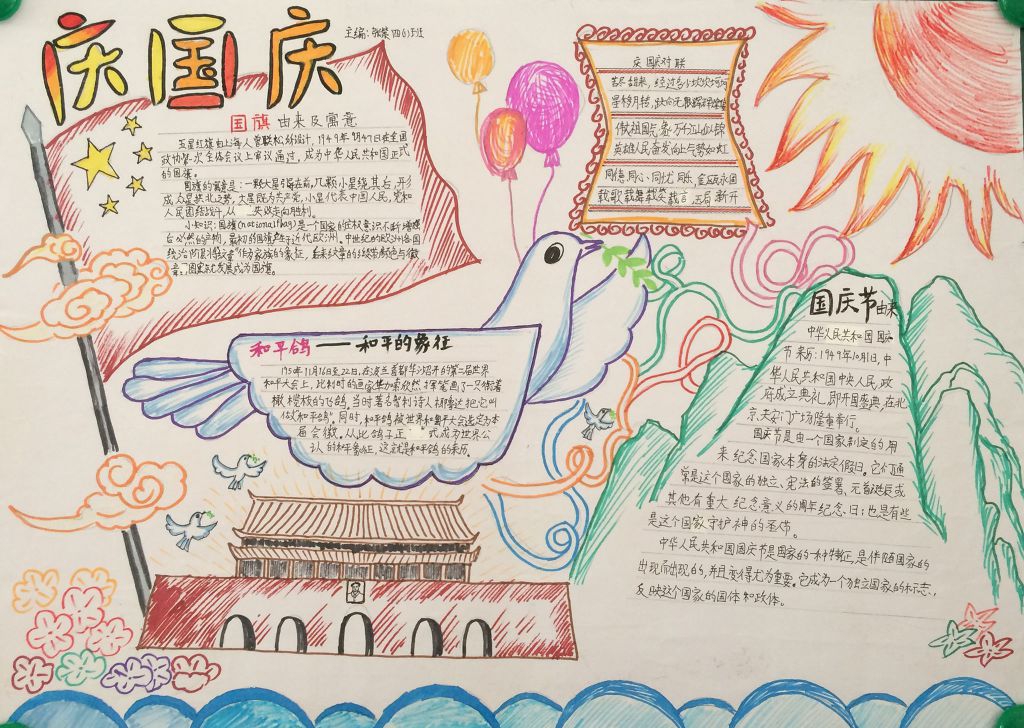 庆国庆
主编:张 四(6)班
国旗由来及寓意
五星红旗由上海人曾联松的设计,1949年9月27日在全国
政协第 次全体会议上审议通过,成为中华人民共和国正式
的国旗。
国旗的寓意是:一颗大星引导在前,几颗小星绕其右,形
成众星拱北之势,大星既为共产党,小星代表中国人民,党和
人民团结战斗,从 走向胜利。
小知识:国旗(nationalflag)是一个国家的主权意识不断增强
后必然的产物,最初的国旗产生于近代欧洲,中世纪的欧洲各国
统治阶层 作为家族的象征, 颜色与徽
章, 发展成为国旗。
庆国庆对联
苦尽甜来,经过多少坎坎坷坷
星移月转,
祖国气象万千江山似锦
英雄人民奋发向上气势如虹
同德同心同忧同乐,
载歌载舞载笑载言
和平鸽——和平的象征
1950年11月16日至22日,在波兰首都华沙召开的第二届世界
和平大会上,比利时的画家 欣然挥笔画了一只衔着
橄榄枝的飞鸽。当时著名智利诗人 把它叫
做"和平鸽"。同时,和平鸽被世界和平大会选定为本
届会徽。从此鸽子正 式成为世界公
认的和平象征,这就是和平鸽的来历。
国庆节由来
中华人民共和国国庆
节来历:1949年10月1日,中
华人民共和国中央人民政
府成立典礼,即开国盛典,在北
京天安门广场隆重举行。
国庆节是由一个国家制定的用
来纪念国家本身的法定假日。它们通
常是这个国家的独立、宪法的签署、元首诞辰或
其他有重大纪念意义的周年纪念日;也是有些
是这个国家守护神的圣节。
中华人民共和国国庆节是国家的一种特征,是伴随国家的
出现而出现的,并且变得尤为重要。它成为一个独立国家的标志,
反映这个国家的国体和政体。